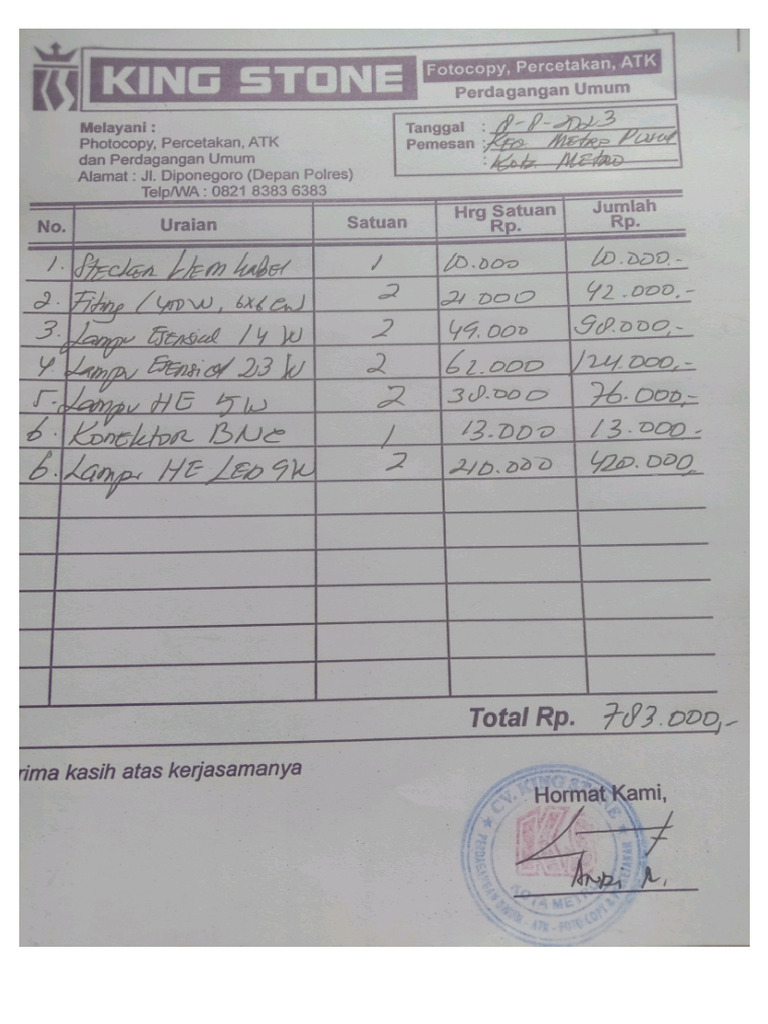 KING STONE
Fotocopy, Percetakan, ATK
Perdagangan Umum
Melayani :
Photocopy, Percetakan, ATK
dan Perdagangan Umum
Alamat : Jl. Diponegoro (Depan Polres)
Telp/WA : 0821 8383 6383
Tanggal : 8-8-2023
Pemesan : Kec Metro Pusat
: Kota Metro
No. Uraian Satuan Hrg Satuan Rp. Jumlah Rp.
1. STECKER Kabel 1 10.000 10.000.-
2. Fiting (400W, 6x6 cm) 2 21.000 42.000.-
3. Lampu Esensial 14 W 2 49.000 98.000,-
4. Lampu Esensial 23 W 2 62.000 124.000,-
5. Lampu HE 5W 2 38.000 76.000,-
6. Konektor BNC 1 13.000 13.000.-
6. Lampu HE LED 9W 2 210.000 420.000,
Total Rp. 783.000,-
rima kasih atas kerjasamanya
Hormat Kami,
CV. KING STONE
KS
KOTA METRO
PERDAGANGAN UMUM - ATK - FOTO COPY &
ANDI R.